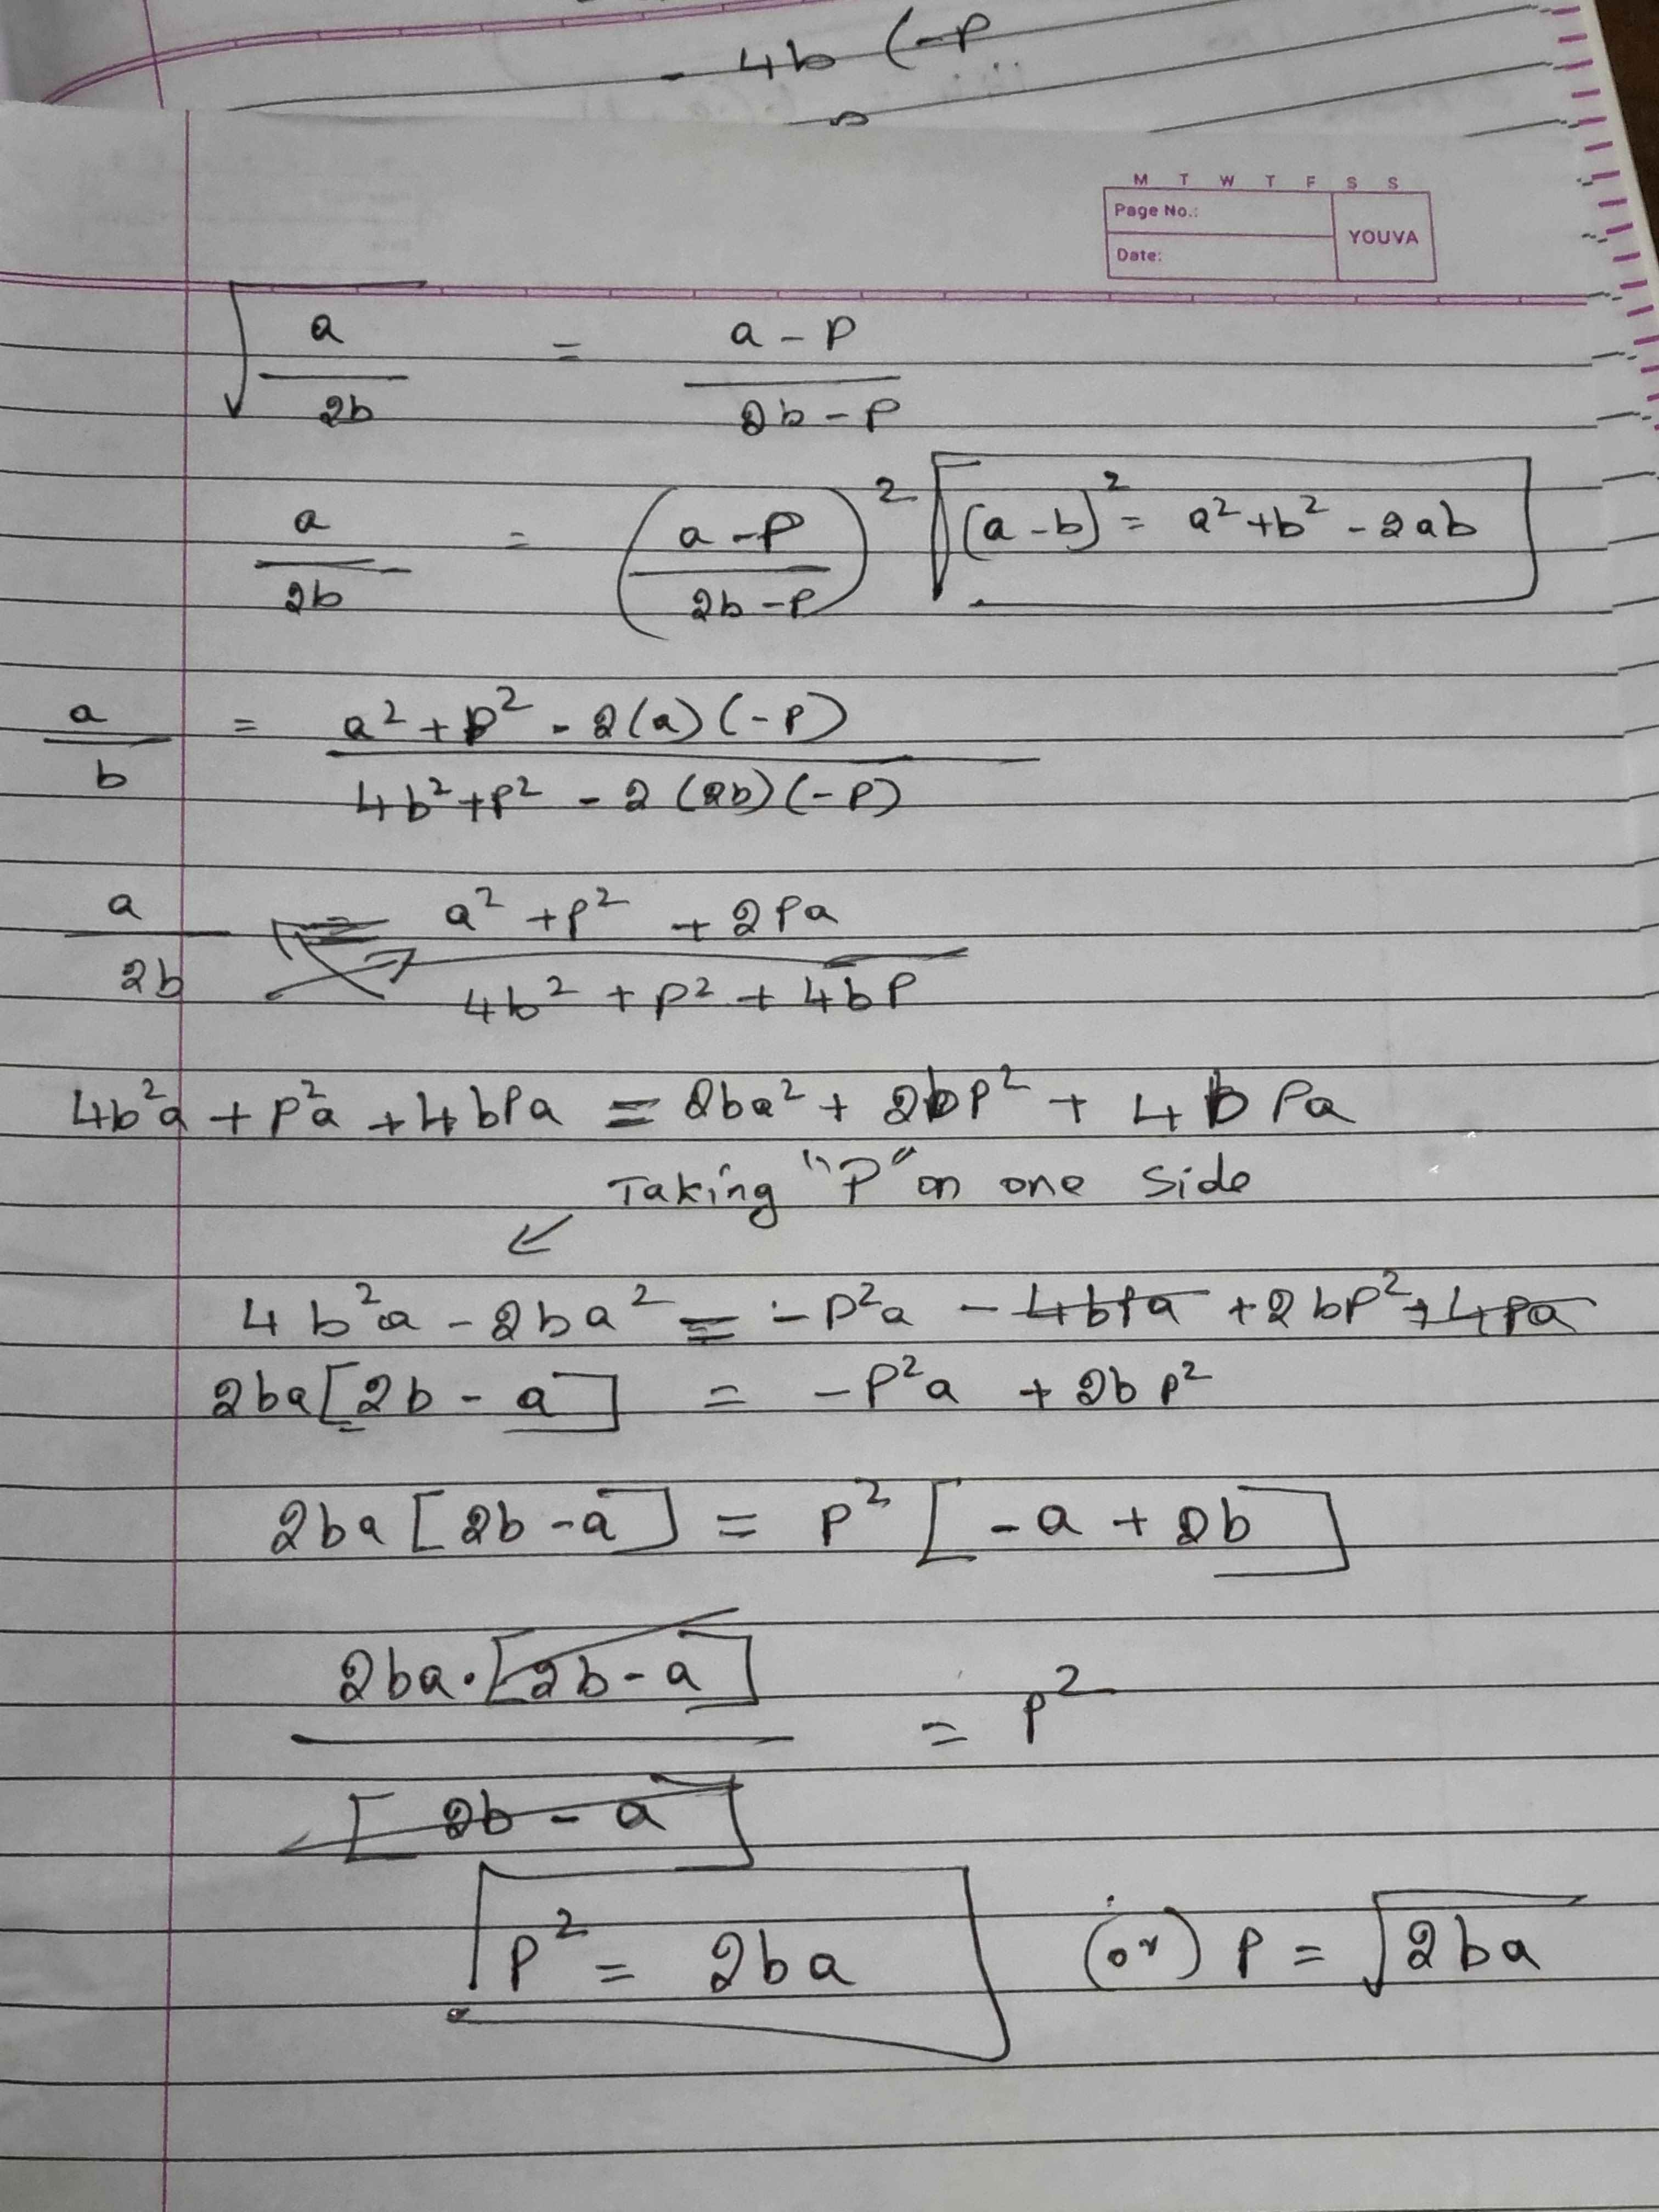 - 4b (-P
M T W T F S S
Page No.:
YOUVA
Date:
√(a/2b) = (a-P)/(2b-P)
a/2b = ((a-P)/(2b-P))² (a-b)² = a²+b² - 2ab
a/b = (a²+p² - 2(a)(-P))/(4b²+p² - 2(2b)(-P))
a/2b = (a²+p² + 2Pa)/(4b²+p²+4bP)
4b²a + p²a + 4bPa = 2ba² + 2bp² + 4bPa
Taking "P" on one side
↙
4b²a - 2ba² = -p²a - 4bPa + 2bp² + 4Pa
2ba[2b - a] = -p²a + 2bp²
2ba[2b-a] = p²[-a+2b]
2ba·[2b-a]/[2b-a] = p²
p² = 2ba (or) P = √(2ba)